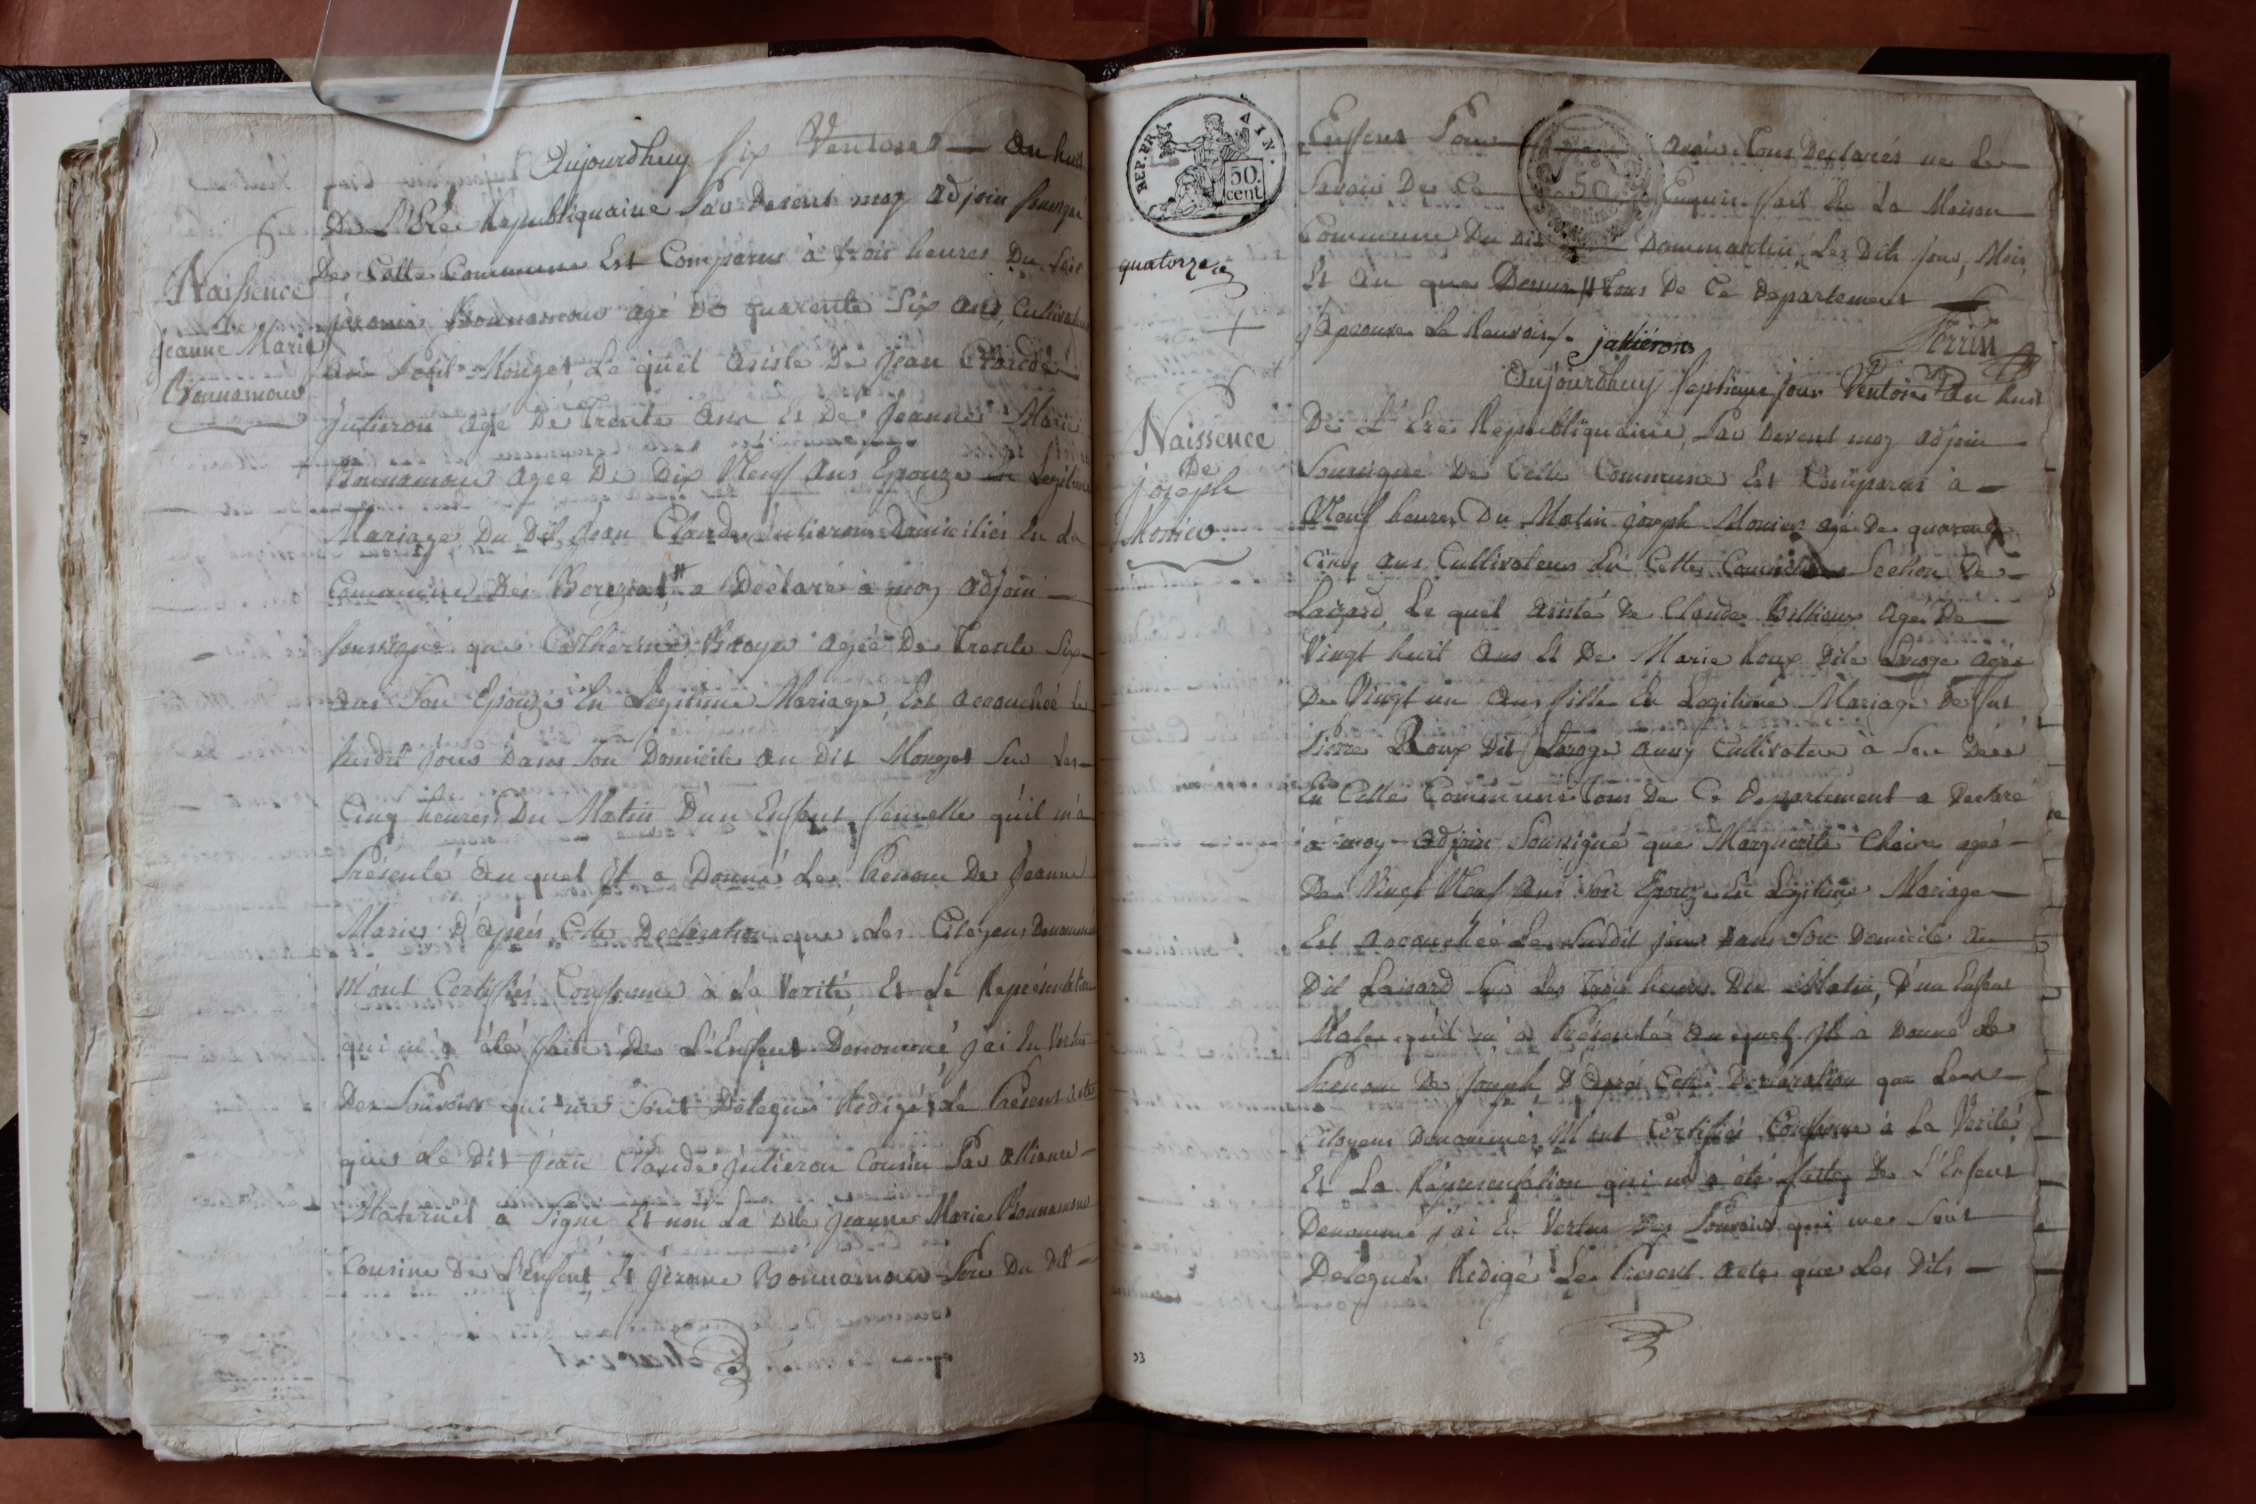 Aujourdhuy six Ventose an huit
De L'Ere Republiquaine Par Devent moy adjoin sousigné
De Cette Commune Est Comparus à trois heures Du Soir
Naissence
De
Jeanne Marie
Bonnamour
jérome Bonnamour agé De quarente Six ans, Cultivateur
au Petit Monget, Le quel asisté De Jean Claude
Julieron agé De Trente ans Et De Jeanne Marie
Bonnamour agée De Dix Neuf ans Epouze En Legitime
Mariage Du Dit Jean Claude Julieron Domiciliés En La
Commune De Bereziat # a Déclaré à moy adjoin
sousigné que Catherine Broyer agée De Trente Six
ans Son Epouze En Legitime Mariage, Est accouchée Le
susdit jour Dans Son Domicile au Dit Monget Sur Les
Cinq heures Du Matin D'un Enfant femelle qu'il m'a
Présenté au quel Jl a Donné Le Prenom De Jeanne
Marie D'Aprés Cette Declaration que Les Citoyens Denommés
M'ont Certifiés Conforme à La Verité Et La Représentation
qui m'a été faite De L'Enfent Denommé j'ai En Vertus
Des Pouvoirs qui me Sont Délegués Redigé Le Présent acte
que Le Dit Jean Claude Julieron Cousin Par alliance
Maternel a Signé Et non La Dite Jeanne Marie Bonnamour
Cousine De L'enfent, Et Jérome Bonnamour Pere Du Dit
REP. FRA. AIN.
50. cent
quatorze
Enfent Pour avoir Tous Declarés ne Le
Savoir De Ce Enquis fait En La Maison
Commune Du Dit Dommartin Les Dits jour, Mois
Et an que Dessus # Tous De Ce Departement
J'approuve Le Renvois julliéron
Perrin
Aujourdhuy septieme jour Ventose An huit
De L'Ere Republiquaine Par Devent moy adjoin
Naissence
De
Joseph
Monier
Sousigné De Cette Commune Est Comparus à
Neuf heures Du Matin Joseph Monier agé De quarente
Cinq ans Cultivateur En Cette Commune Section De
Laizard, Le quel asisté De Claude agé De
Vingt huit ans Et De Marie Roux Dite Laroge agée
De Vingt un ans fille En Legitime Mariage De fut
Pierre Roux Dit Laroge aussy Cultivateur à Son Décé
En Cette Commune Tous De Ce Departement a Declaré
à moy adjoin Sousigné que Marguerite Chaire ageé
De Vingt Neuf ans Son Epouze En Legitime Mariage
Est accouchée Le Susdit jour Dans Son Domicile Au
Dit Laisard Sur Les Trois heures Du Matin, D'un Enfent
Male qu'il m'a Présenté au quel Jl a Donné Le
Prenom De Joseph D'Aprés Cette Declaration que Les
Citoyens Denommés M'ont Certifiés Conforme à La Verité
Et La Représentation qui m'a été faitte De L'Enfent
Denommé j'ai En Vertus Des Pouvoirs qui me Sont
Delegués Redigé Le Present acte que Les Dits
33